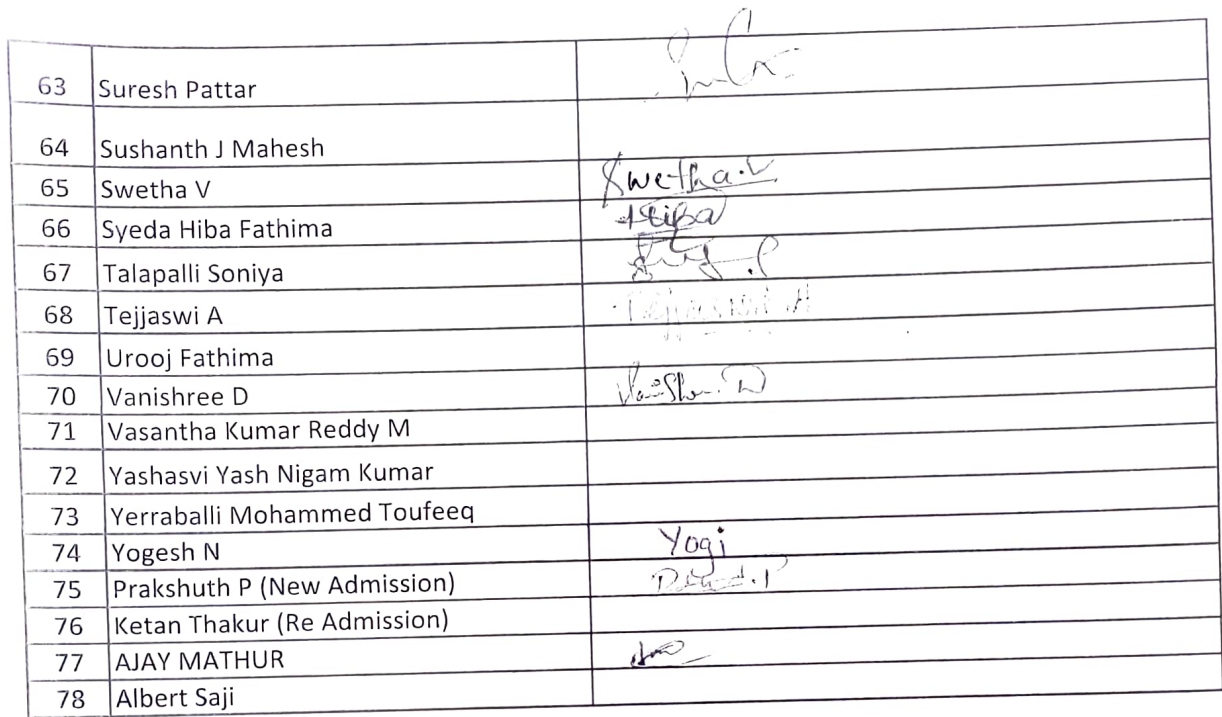 63 Suresh Pattar
64 Sushanth J Mahesh
65 Swetha V Swetha.V
66 Syeda Hiba Fathima Hiba
67 Talapalli Soniya
68 Tejjaswi A
69 Urooj Fathima
70 Vanishree D
71 Vasantha Kumar Reddy M
72 Yashasvi Yash Nigam Kumar
73 Yerraballi Mohammed Toufeeq
74 Yogesh N Yogi
75 Prakshuth P (New Admission)
76 Ketan Thakur (Re Admission)
77 AJAY MATHUR
78 Albert Saji